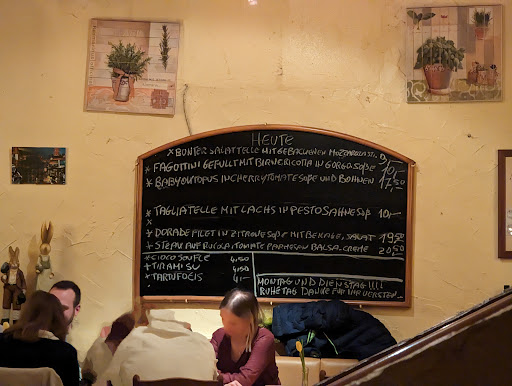 HEUTE
* BUNTER SALATTELLER MIT GEBACKENEN MOZZARELLAST. 9,-
* FAGOTTINI GEFÜLLT MIT BIRNE/RICOTTA IN GORGO SOßE 10,-
* BABYOKTOPUS IN CHERRYTOMATE SOßE UND BOHNEN 17,50
* TAGLIATELLE MIT LACHS IN PESTO SAHNE SOß 10,-
*
* DORADE FILET IN ZITRONE SOßE MIT BEILAGE, SALAT 19,50
+ STEAK AUF RUCOLA, TOMATE PARMESAN BALSA. CREME 20,50
* CIOCO SOUFLE 4,50
+ TIRAMISU 4,50
* TARTUFOEIS 4,-
MONTAG UND DIENSTAG !!!!
RUHETAG DANKE FÜR IHR VERSTEN.